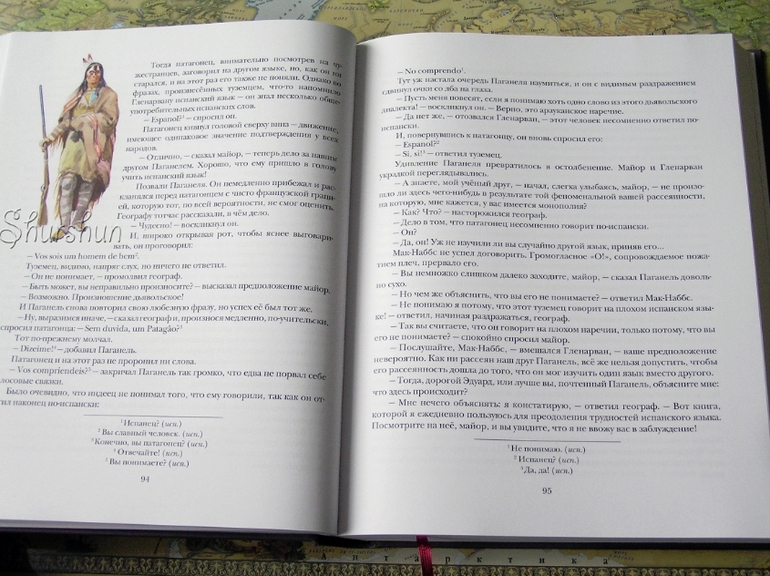 Тогда патагонец, внимательно посмотрев на чу-
жестранцев, заговорил на другом языке, но, как он ни
старался, и на этот раз его также не поняли. Однако во
фразах, произнесённых туземцем, что-то напомнило
Гленарвану испанский язык – он знал несколько обще-
употребительных испанских слов.
– Espanol?¹ – спросил он.
Патагонец кивнул головой сверху вниз – движение,
имеющее одинаковое значение подтверждения у всех
народов.
– Отлично, – сказал майор, – теперь дело за нашим
другом Паганелем. Хорошо, что ему пришло в голову
учить испанский язык!
Позвали Паганеля. Он немедленно прибежал и рас-
кланялся перед патагонцем с чисто французской граци-
ей, которую тот, по всей вероятности, не смог оценить.
Географу тотчас рассказали, в чём дело.
– Чудесно! – воскликнул он.
И, широко открывая рот, чтобы яснее выговари-
вать, он проговорил:
– Vos sois um homem de bem².
Туземец, видимо, напряг слух, но ничего не ответил.
– Он не понимает, – промолвил географ.
– Быть может, вы неправильно произносите? – высказал предположение майор.
– Возможно. Произношение дьявольское!
И Паганель снова повторил свою любезную фразу, но успех её был тот же.
– Ну, выразимся иначе, – сказал географ и, произнося медленно, по-учительски,
спросил патагонца: – Sem duvida, um Patagão?³
Тот по-прежнему молчал.
– Dizeime!⁴ – добавил Паганель.
Патагонец и на этот раз не проронил ни слова.
– Vos compriendeis?⁵ – закричал Паганель так громко, что едва не порвал себе
голосовые связки.
Было очевидно, что индеец не понимал того, что ему говорили, так как он от-
ветил наконец по-испански:
¹ Испанец? (исп.)
² Вы славный человек. (исп.)
³ Конечно, вы патагонец? (исп.)
⁴ Отвечайте! (исп.)
⁵ Вы понимаете? (исп.)
94
– No comprendo¹.
Тут уж настала очередь Паганеля изумиться, и он с видимым раздражением
сдвинул очки со лба на глаза.
– Пусть меня повесят, если я понимаю хоть одно слово из этого дьявольского
диалекта! – воскликнул он. – Верно, это арауканское наречие.
– Да нет же, – отозвался Гленарван, – этот человек несомненно ответил по-
испански.
И, повернувшись к патагонцу, он вновь спросил его:
– Espanol?²
– Si, si!³ – ответил туземец.
Удивление Паганеля превратилось в остолбенение. Майор и Гленарван
украдкой переглядывались.
– А знаете, мой учёный друг, – начал, слегка улыбаясь, майор, – не произо-
шло ли здесь чего-нибудь в результате той феноменальной вашей рассеянности,
на которую, мне кажется, у вас имеется монополия?
– Как? Что? – насторожился географ.
– Дело в том, что патагонец несомненно говорит по-испански.
– Он?
– Да, он! Уж не изучили ли вы случайно другой язык, приняв его...
Мак-Наббс не успел договорить. Громогласное «О!», сопровождаемое пожа-
тием плеч, прервало его.
– Вы немножко слишком далеко заходите, майор, – сказал Паганель доволь-
но сухо.
– Но чем же объяснить, что вы его не понимаете? – ответил Мак-Наббс.
– Не понимаю я потому, что этот туземец говорит на плохом испанском язы-
ке! – ответил, начиная раздражаться, географ.
– Так вы считаете, что он говорит на плохом наречии, только потому, что вы
его не понимаете? – спокойно спросил майор.
– Послушайте, Мак-Наббс, – вмешался Гленарван, – ваше предположение
невероятно. Как ни рассеян наш друг Паганель, всё же нельзя допустить, чтобы
его рассеянность дошла до того, что он мог изучить один язык вместо другого.
– Тогда, дорогой Эдуард, или лучше вы, почтенный Паганель, объясните мне:
что здесь происходит?
– Мне нечего объяснять: я констатирую, – ответил географ. – Вот книга,
которой я ежедневно пользуюсь для преодоления трудностей испанского языка.
Посмотрите на неё, майор, и вы увидите, что я не ввожу вас в заблуждение!
¹ Не понимаю. (исп.)
² Испанец? (исп.)
³ Да, да! (исп.)
95
Shurshun
Антарктика